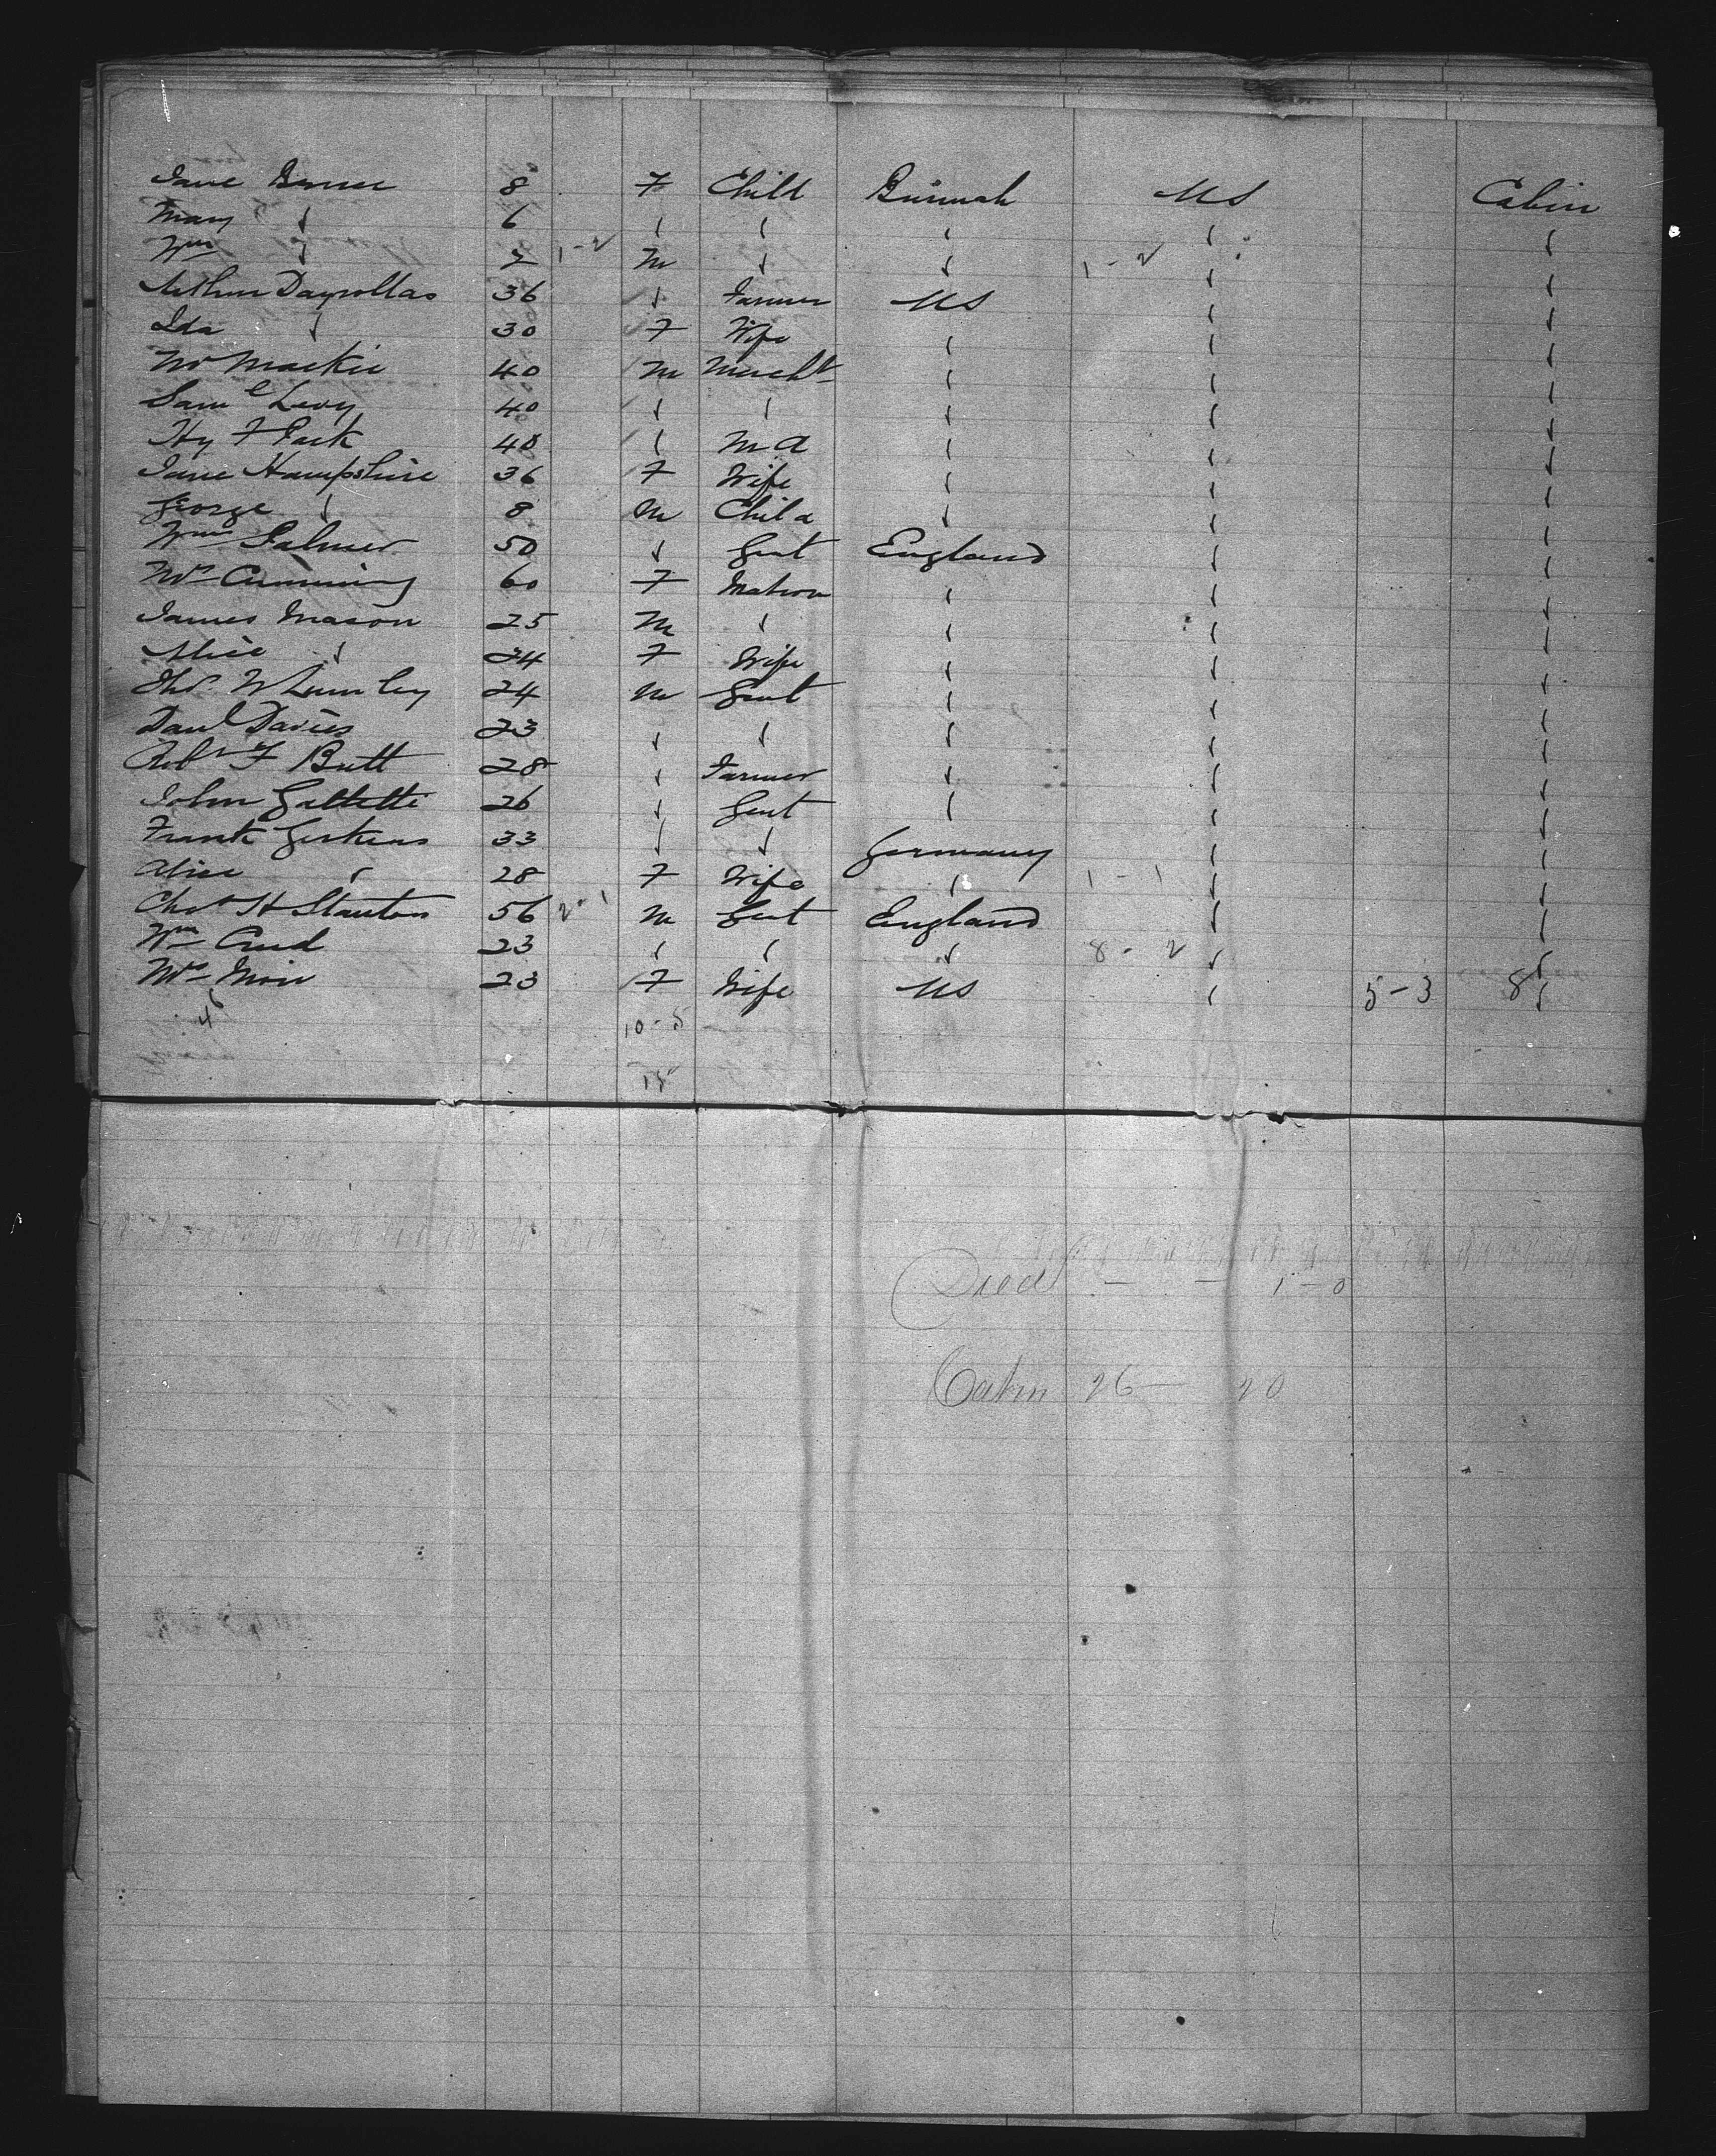 Jane 8 F Child Burmah US Cabin
Mary " 6 " " " " "
Wm " 2 1-2 M " " 1-2 " "
Arthur Dayrollas 36 " Farmer US " "
Ida " 30 F Wife " " "
Mr Mackie 40 M Mercht " " "
Saml Levy 40 " " " " "
Hy F Park 40 " M A " " "
Jane Hampshire 36 F Wife " " "
George " 8 M Child " " "
Wm Palmer 50 " Gent England " "
Mrs Cumming 60 F Matron " " "
James Mason 25 M " " " "
Alice " 24 F Wife " " "
W Lumley 24 M Gent " " "
Danl Davies 23 " " " " "
Robt F Butt 28 " Farmer " " "
John 26 " Gent " " "
Frank Gerkens 33 " " Germany " "
Alice " 28 F Wife " 1-1 " "
Chas H Stanton 56 2-1 M Gent England " "
Wm 23 " " " 8-2 " "
Mrs 23 F Wife US " 5-3 8 "
46 10-5
15
Died - - 1-0
Cabin 26 - 20